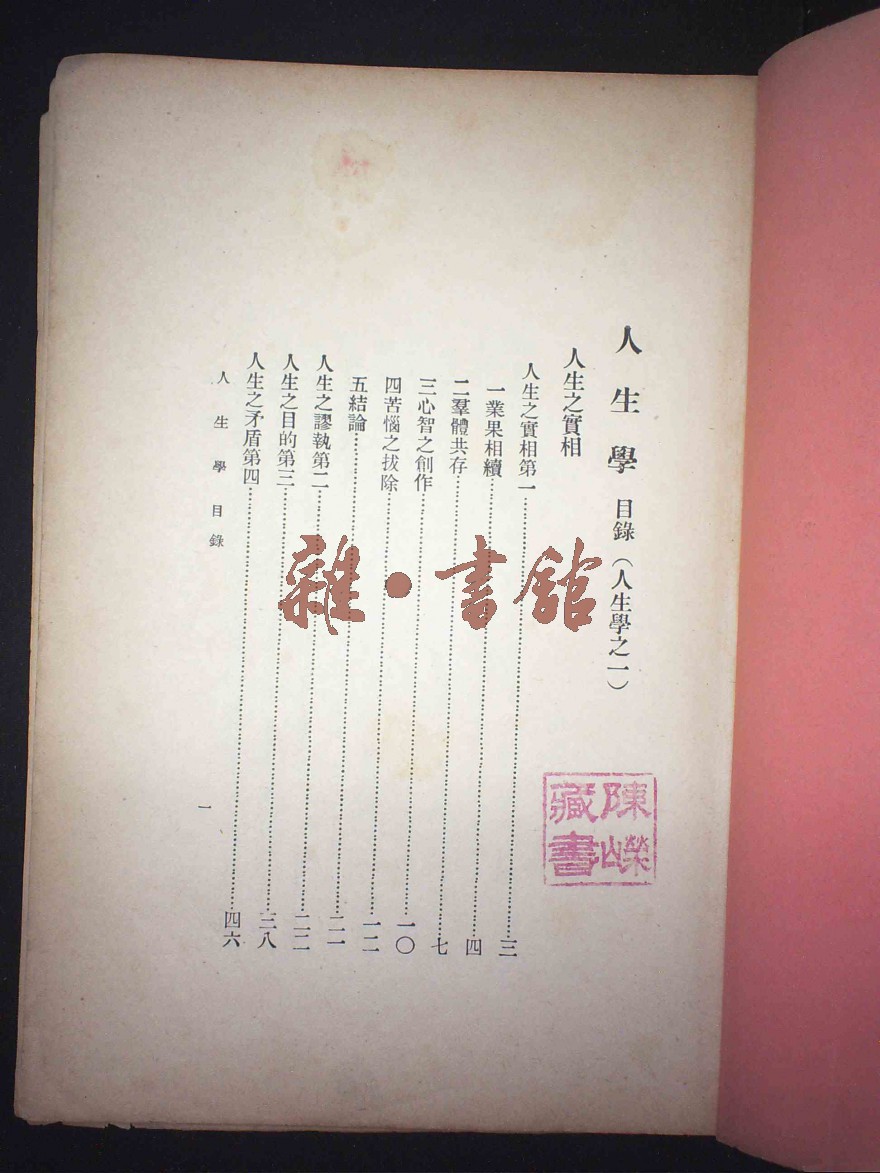 人生學 目錄（人生學之一）
人生之實相
人生之實相第一……三
一業果相續……四
二羣體共存……七
三心智之創作……一〇
四苦惱之拔除……一二
五結論……二一
人生之謬執第二……二二
人生之目的第三……三八
人生之矛盾第四……四六
人生學目錄
一
陳嶸
藏書
雜·書館